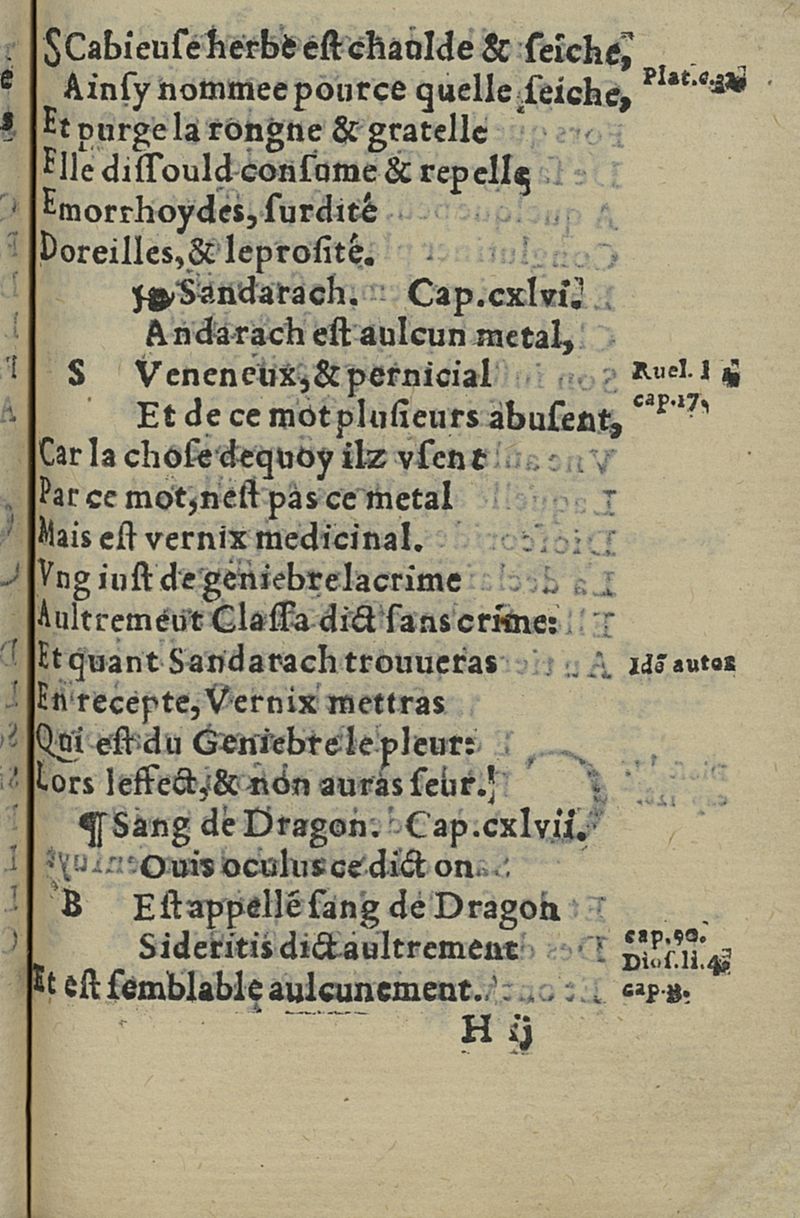 SCabieuſe herbe eſt chaulde & ſeiche,
Ainſy nommee pource quelle ſeiche,
Plat.c.
Et purge la rongne & gratelle
Elle diſſould conſume & repelle
Emorrhoydes, ſurdité
Doreilles, & leproſité.
Sandarach. Cap.cxlvi.
Andarach eſt aulcun metal,
S Veneneux, & pernicial
Ruel. l
Et de ce mot pluſieurs abuſent,
cap.17.
Car la choſe dequoy ilz vſent
Par ce mot, neſt pas ce metal
Mais eſt vernix medicinal.
Vng iuſt de geniebre lacrime
Aultremeut Claſſa dict ſans crime:
Et quant Sandarach trouueras
Idē autor
En recepte, Vernix mettras
Qui eſt du Geniebre le pleur:
Lors leffect, & non auras ſeur.
¶ Sang de Dragon. Cap.cxlvii.
Ouis oculus ce dict on
B Eſt appellé ſang de Dragon
Sideritis dict aultrement
cap.90.
Dioſ.li.4.
Et eſt ſemblable aulcunement.
cap.8.
H ij